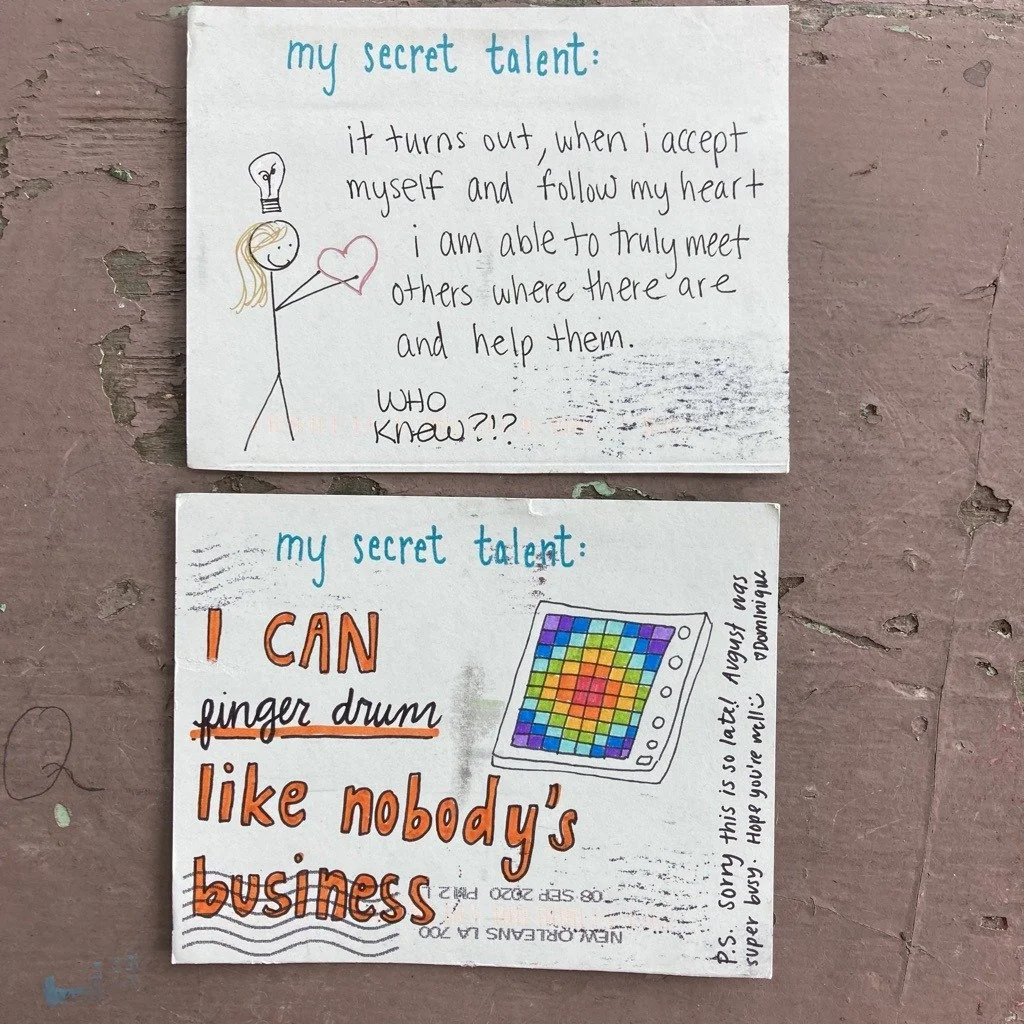 my secret talent:
it turns out, when i accept
myself and follow my heart
i am able to truly meet
others where there are
and help them.
WHO
Knew?!?
my secret talent:
I CAN
finger drum
like nobody's
business
P.S. sorry this is so late! August was
super busy. Hope you're well! ♡Dominique
NEW ORLEANS LA 700
08 SEP 2020 PM 2 L
2